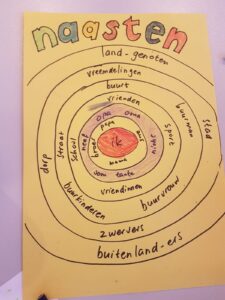 naasten
land-genoten
vreemdelingen
buurt
vrienden
opa oma
papa
ik
broer
mama
neef
nicht
oom tante
school
sport
straat
buurman
dorp
stad
vriendinnen
buurkinderen
buurvrouw
zwervers
buitenland-ers